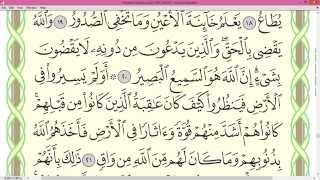 يُطَاعُ ١٨ يَعْلَمُ خَآئِنَةَ ٱلْأَعْيُنِ وَمَا تُخْفِى ٱلصُّدُورُ ١٩ وَٱللَّهُ
يَقْضِى بِٱلْحَقِّ وَٱلَّذِينَ يَدْعُونَ مِن دُونِهِۦ لَا يَقْضُونَ
بِشَىْءٍ إِنَّ ٱللَّهَ هُوَ ٱلسَّمِيعُ ٱلْبَصِيرُ ٢٠ ۞ أَوَلَمْ يَسِيرُوا۟ فِى
ٱلْأَرْضِ فَيَنظُرُوا۟ كَيْفَ كَانَ عَٰقِبَةُ ٱلَّذِينَ كَانُوا۟ مِن قَبْلِهِمْ
كَانُوا۟ هُمْ أَشَدَّ مِنْهُمْ قُوَّةً وَءَاثَارًا فِى ٱلْأَرْضِ فَأَخَذَهُمُ ٱللَّهُ
بِذُنُوبِهِمْ وَمَا كَانَ لَهُم مِّنَ ٱللَّهِ مِن وَاقٍ ٢١ ذَٰلِكَ بِأَنَّهُمْ